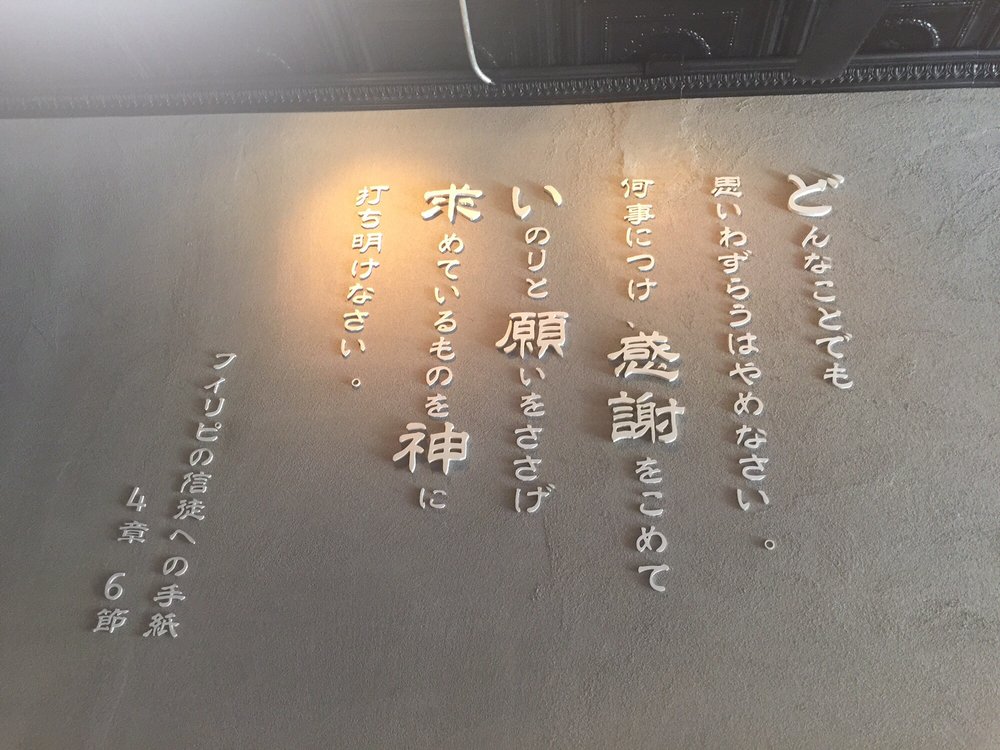 どんなことでも
思いわずらうはやめなさい。
何事につけ、感謝をこめて
いのりと願いをささげ
求めているものを神に
打ち明けなさい。
フィリピの信徒への手紙
4章 6節